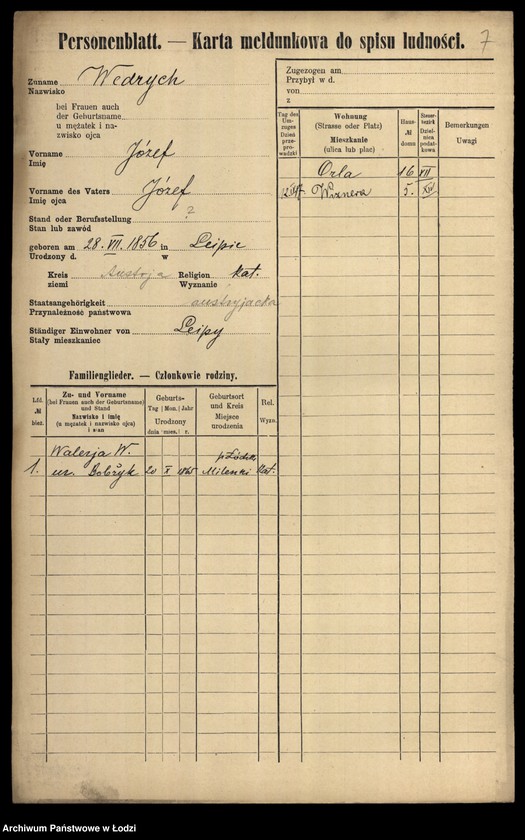 Personenblatt. — Karta meldunkowa do spisu ludności.
7
Zuname Wedrych
Nazwisko
bei Frauen auch
der Geburtsname
u mężatek i na-
zwisko ojca
Vorname Józef
Imię
Vorname des Vaters Józef
Imię ojca
Stand oder Berufsstellung ?
Stan lub zawód
geboren am 28. VII. 1856 in Leipie
Urodzony d. w
Kreis Austrja Religion Kat.
ziemi Wyznanie
Staatsangehörigkeit austryjacka
Przynależność państwowa
Ständiger Einwohner von Leipy
Stały mieszkaniec
Familienglieder. — Członkowie rodziny.
Lfd. № bież.
Zu- und Vorname
(bei Frauen auch der Geburtsname)
und Stand
Nazwisko i imię
(u mężatek i nazwisko ojca)
i stan
Geburts-
Tag | Mon. | Jahr
Urodzony
dnia mies. r.
Geburtsort
und Kreis
Miejsce
urodzenia
Rel.
Wyzn.
Walerja W. p. Łódzki
1. ur. Bobżyk 20 X 1865 Mileszki Kat.
Zugezogen am
Przybył w d.
von
z
Tag des
Um-
zuges
Dzień
prze-
prowadzki
Wohnung
(Strasse oder Platz)
Mieszkanie
(ulica lub plac)
Haus-
№
domu
Steuer-
bezirk
Dziel-
nica
podat-
kowa
Bemerkungen
Uwagi
Orla 16 VII
Wiznera 5. XIV
Archiwum Państwowe w Łodzi